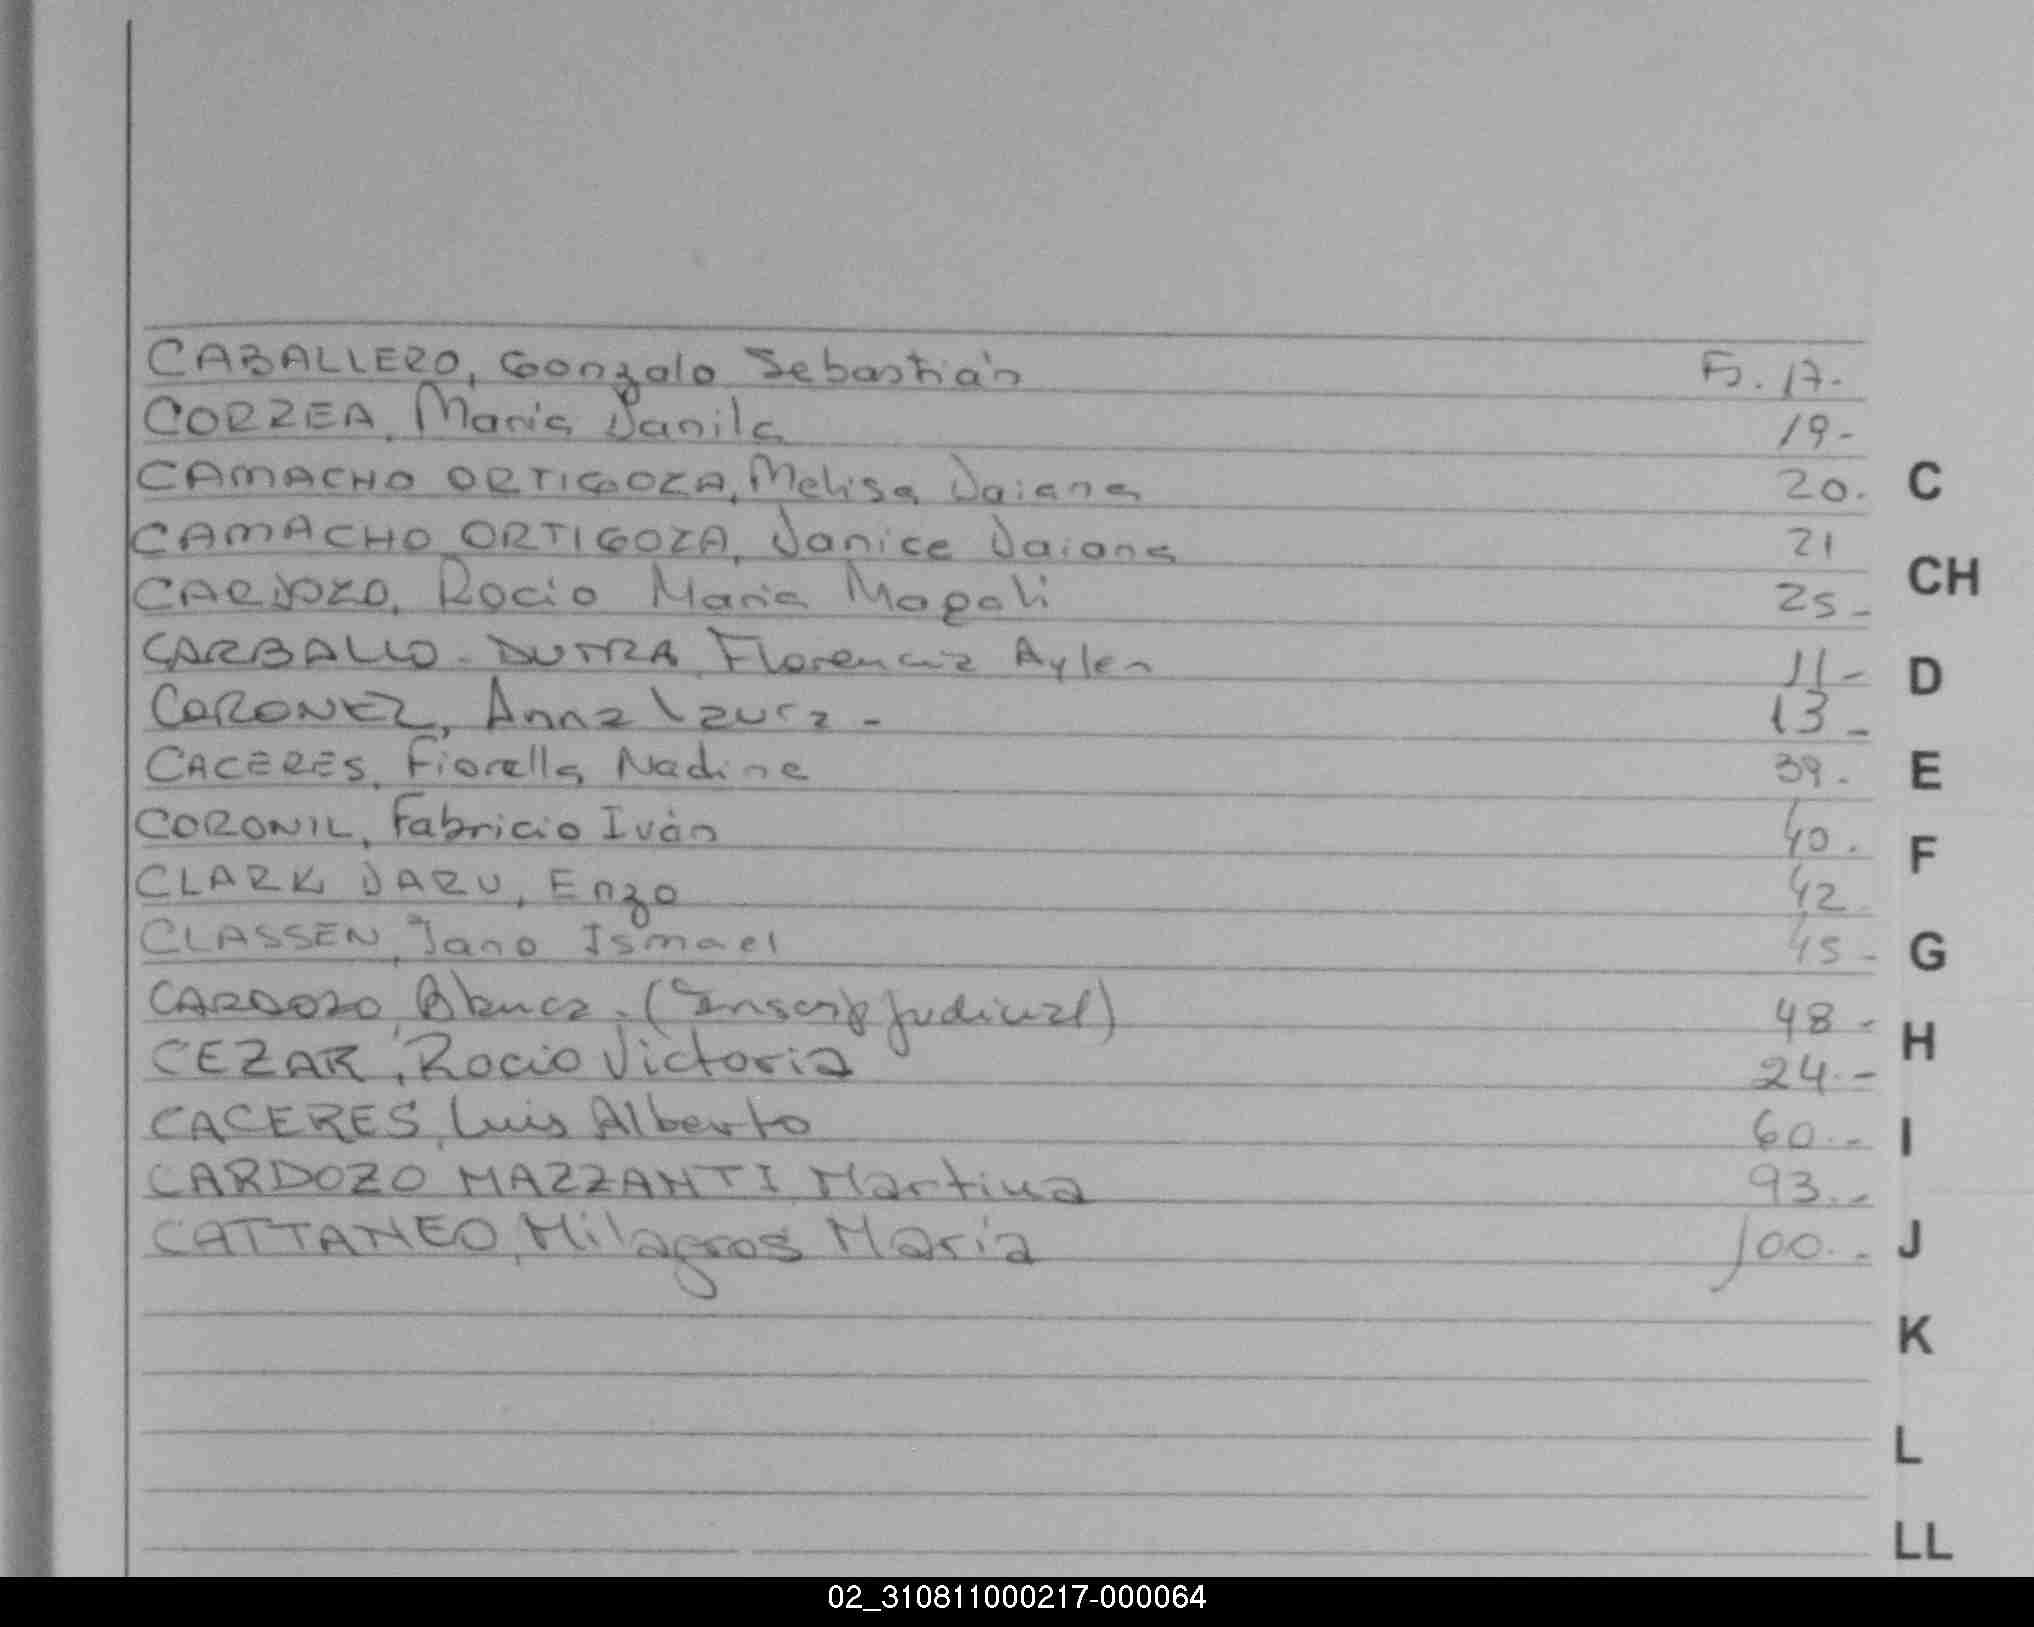 CABALLERO, Gonzalo Sebastián Fs. 17.
CORREA, María Danila 19-
CAMACHO ORTIGOZA, Melisa Daiana 20.
CAMACHO ORTIGOZA, Janice Daiana 21
CARDOZO, Rocio María Magali 25-
CARBALLO-DUTRA Florencia Aylen 11-
CORONEZ, Anna Laura - 13-
CACERES, Fiorella Nadine 39.
CORONIL, Fabricio Iván 40.
CLARK DARU, Enzo 42
CLASSEN, Jano Ismael 45-
CARDOZO, Blanca. (Inscrip Judicial) 48-
CEZAR, Rocio Victoria 24.-
CACERES, Luis Alberto 60.-
CARDOZO MAZZANTI Martina 93.-
CATTANEO, Milagros María 100.-
C
CH
D
E
F
G
H
I
J
K
L
LL
02_310811000217-000064